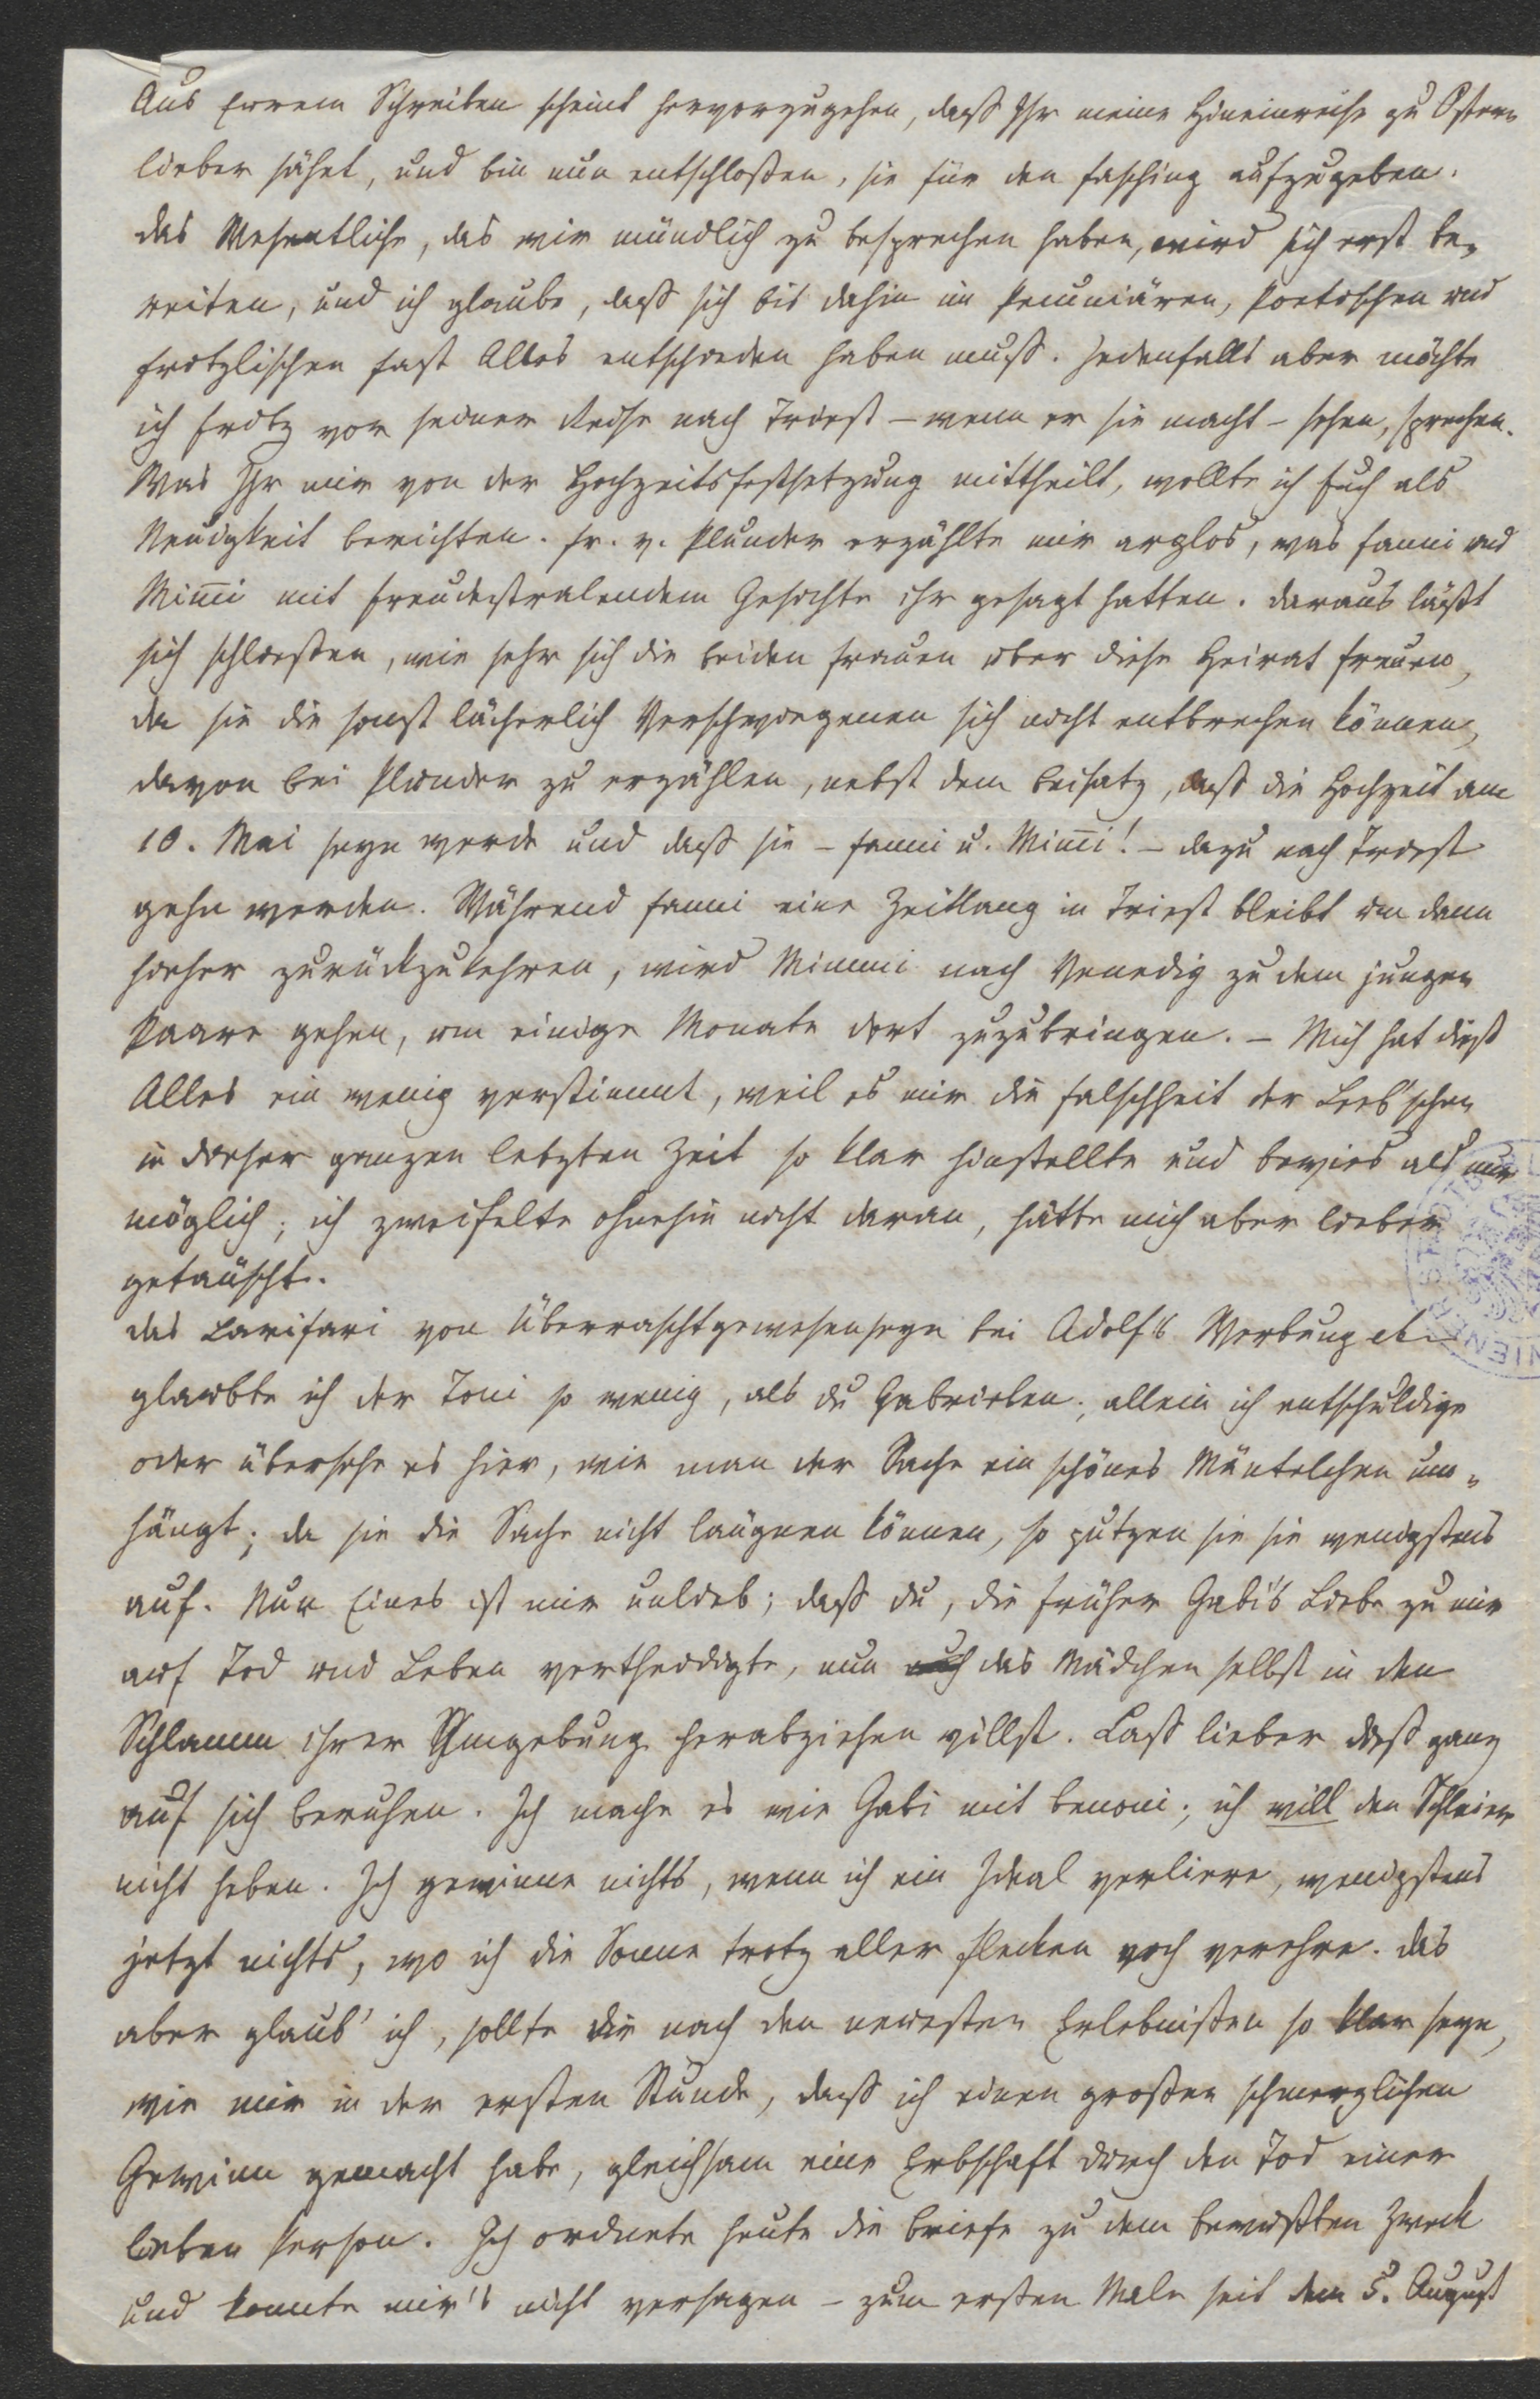 Aus Eurem Schreiben scheint hervorzugehen, daß Ihr meine Hineinreise zu Ostern
lieber sähet, und bin nun entschloßen, sie für den Fasching aufzugeben.
Das Wesentliche, das wir mündlich zu besprechen haben, wird sich erst be-
reiten, und ich glaube, daß sich bis dahin im Pecuniären, Poetischen und
Fritzlischen fast Alles entschieden haben muß. Jedenfalls aber möchte
ich Fritz vor seiner Reise nach Triest – wenn er sie macht – sehen, sprechen.
Was Ihr mir von der Hochzeitsfestsetzung mittheilt, wollte ich Euch als
Neuigkeit berichten. Fr. v. Plunder erzählte mir arglos, was Fanni und
Mimi mit freudestralendem Gesichte ihr gesagt hatten. Daraus läßt
sich schließen, wie sehr sich die beiden Frauen über diese Heirat freuen,
da sie die sonst lächerlich Verschwiegenen sich nicht entbrechen können,
davon bei Plunder zu erzählen, nebst dem Beisatz, daß die Hochzeit am
10. Mai seyn werde und daß sie – Fanni u. Mimi! – dazu nach Triest
gehn werden. Während Fanni eine Zeitlang in Triest bleibt um dann
hieher zurückzukehren, wird Mimmi nach Venedig zu dem jungen
Paare gehen, um einige Monate dort zuzubringen. – Mich hat dieß
Alles ein wenig verstimmt, weil es mir die Falschheit der Leeb'schen
in dieser ganzen letzten Zeit so klar hinstellte und bewies als nur
möglich; ich zweifelte ohnehin nicht daran, hätte mich aber lieber
getäuscht.
Das Larifari von Überraschtgewesenseyn bei Adolf's Werbung etc
glaubte ich der Toni so wenig, als du Gabrielen; allein ich entschuldige
oder übersehe es hier, wie man der Sache ein schönes Mäntelchen um-
hängt; da sie die Sache nicht läugnen können, so putzen sie sie wenigstens
auf. Nur Eines ist mir unlieb; daß du, die früher Gabi's Liebe zu mir
auf Tod und Leben vertheidigte, nun auch das Mädchen selbst in den
Schlamm ihrer Umgebung herabziehen willst. Laß lieber dieß ganz
auf sich beruhen. Ich mache es wie Gabi mit Benoni; ich will den Schleier
nicht heben. Ich gewinne nichts, wenn ich ein Ideal verliere, wenigstens
jetzt nichts, wo ich die Sonne trotz aller Flecken noch verehre. Das
aber glaub' ich, sollte dir nach den neuesten Erlebnißen so klar seyn,
wie mir in der ersten Stunde, daß ich einen großen schmerzlichen
Gewinn gemacht habe, gleichsam eine Erbschaft durch den Tod einer
lieben Person. Ich ordnete heute die Briefe zu dem bewußten Zweck
und konnte mir's nicht versagen – zum ersten Male seit dem 5. August